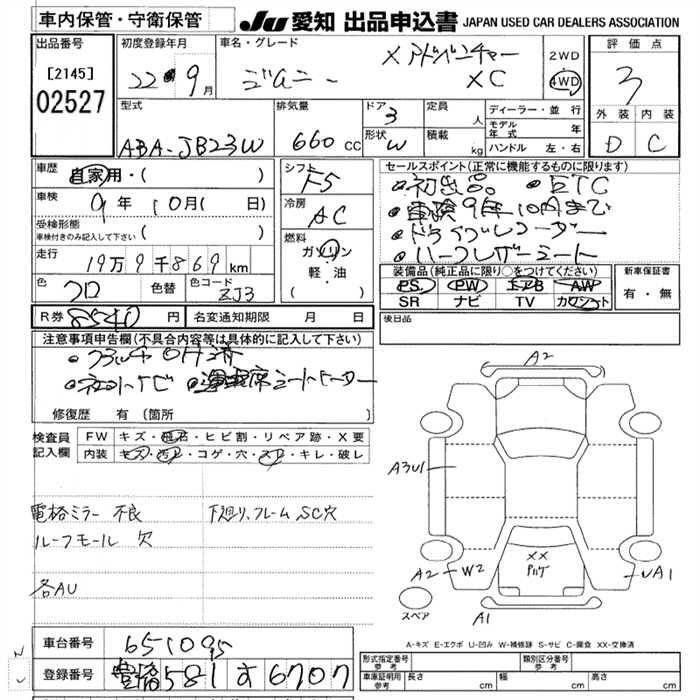 車内保管・守衛保管
JU 愛知 出品申込書 JAPAN USED CAR DEALERS ASSOCIATION
出品番号
[2145]
02527
初度登録年月
22 9月
車名・グレード
ジムニー
X アドベンチャー
XC
2WD
4WD
評価点
3
外装 内装
D C
型式
ABA-JB23W
排気量
660 cc
ドア 3
形状 W
定員 人
積載 kg
ディーラー・並行
モデル年式 年
ハンドル 左・右
車歴
自家用・( )
車検
9年 10月( 日)
受検形態
車検付きのみ記入して下さい ( )
走行
19万9千869km
色 クロ
色替
色コード ZJ3
シフト
F5
冷房
AC
燃料
ガソリン
軽・油
( )
R券 8540 円
名変通知期限 月 日
セールスポイント(正常に機能するものに限ります)
・初出品 ・ETC
・車検9年10月まで
・ドライブレコーダー
・ハーフレザーシート
装備品(純正品に限り○をつけてください)
PS PW エアB AW
SR ナビ TV カワシート
新車保証書
有・無
後日品
注意事項申告欄(不具合内容等は具体的に記入して下さい)
・クラッチOH済
・社外ナビ ・運転席シートヒーター
修復歴 有(箇所 )
検査員記入欄
FW キズ・飛石・ヒビ割・リペア跡・X要
内装 キズ・汚レ・コゲ・穴・スレ・キレ・破レ
電格ミラー 不良 下廻り、フレームSC穴
ルーフモール 欠
各AU
A2
A3U1
XX
A2 W2
UA1
A1
スペア
A-キズ E-エクボ U-凹み W-補修跡 S-サビ C-腐食 XX-交換済
車台番号 651095
登録番号 豊橋581す6707
形式指定番号 参考
類別区分番号 参考
車庫証明用 参考 長さ cm 幅 cm 高さ cm